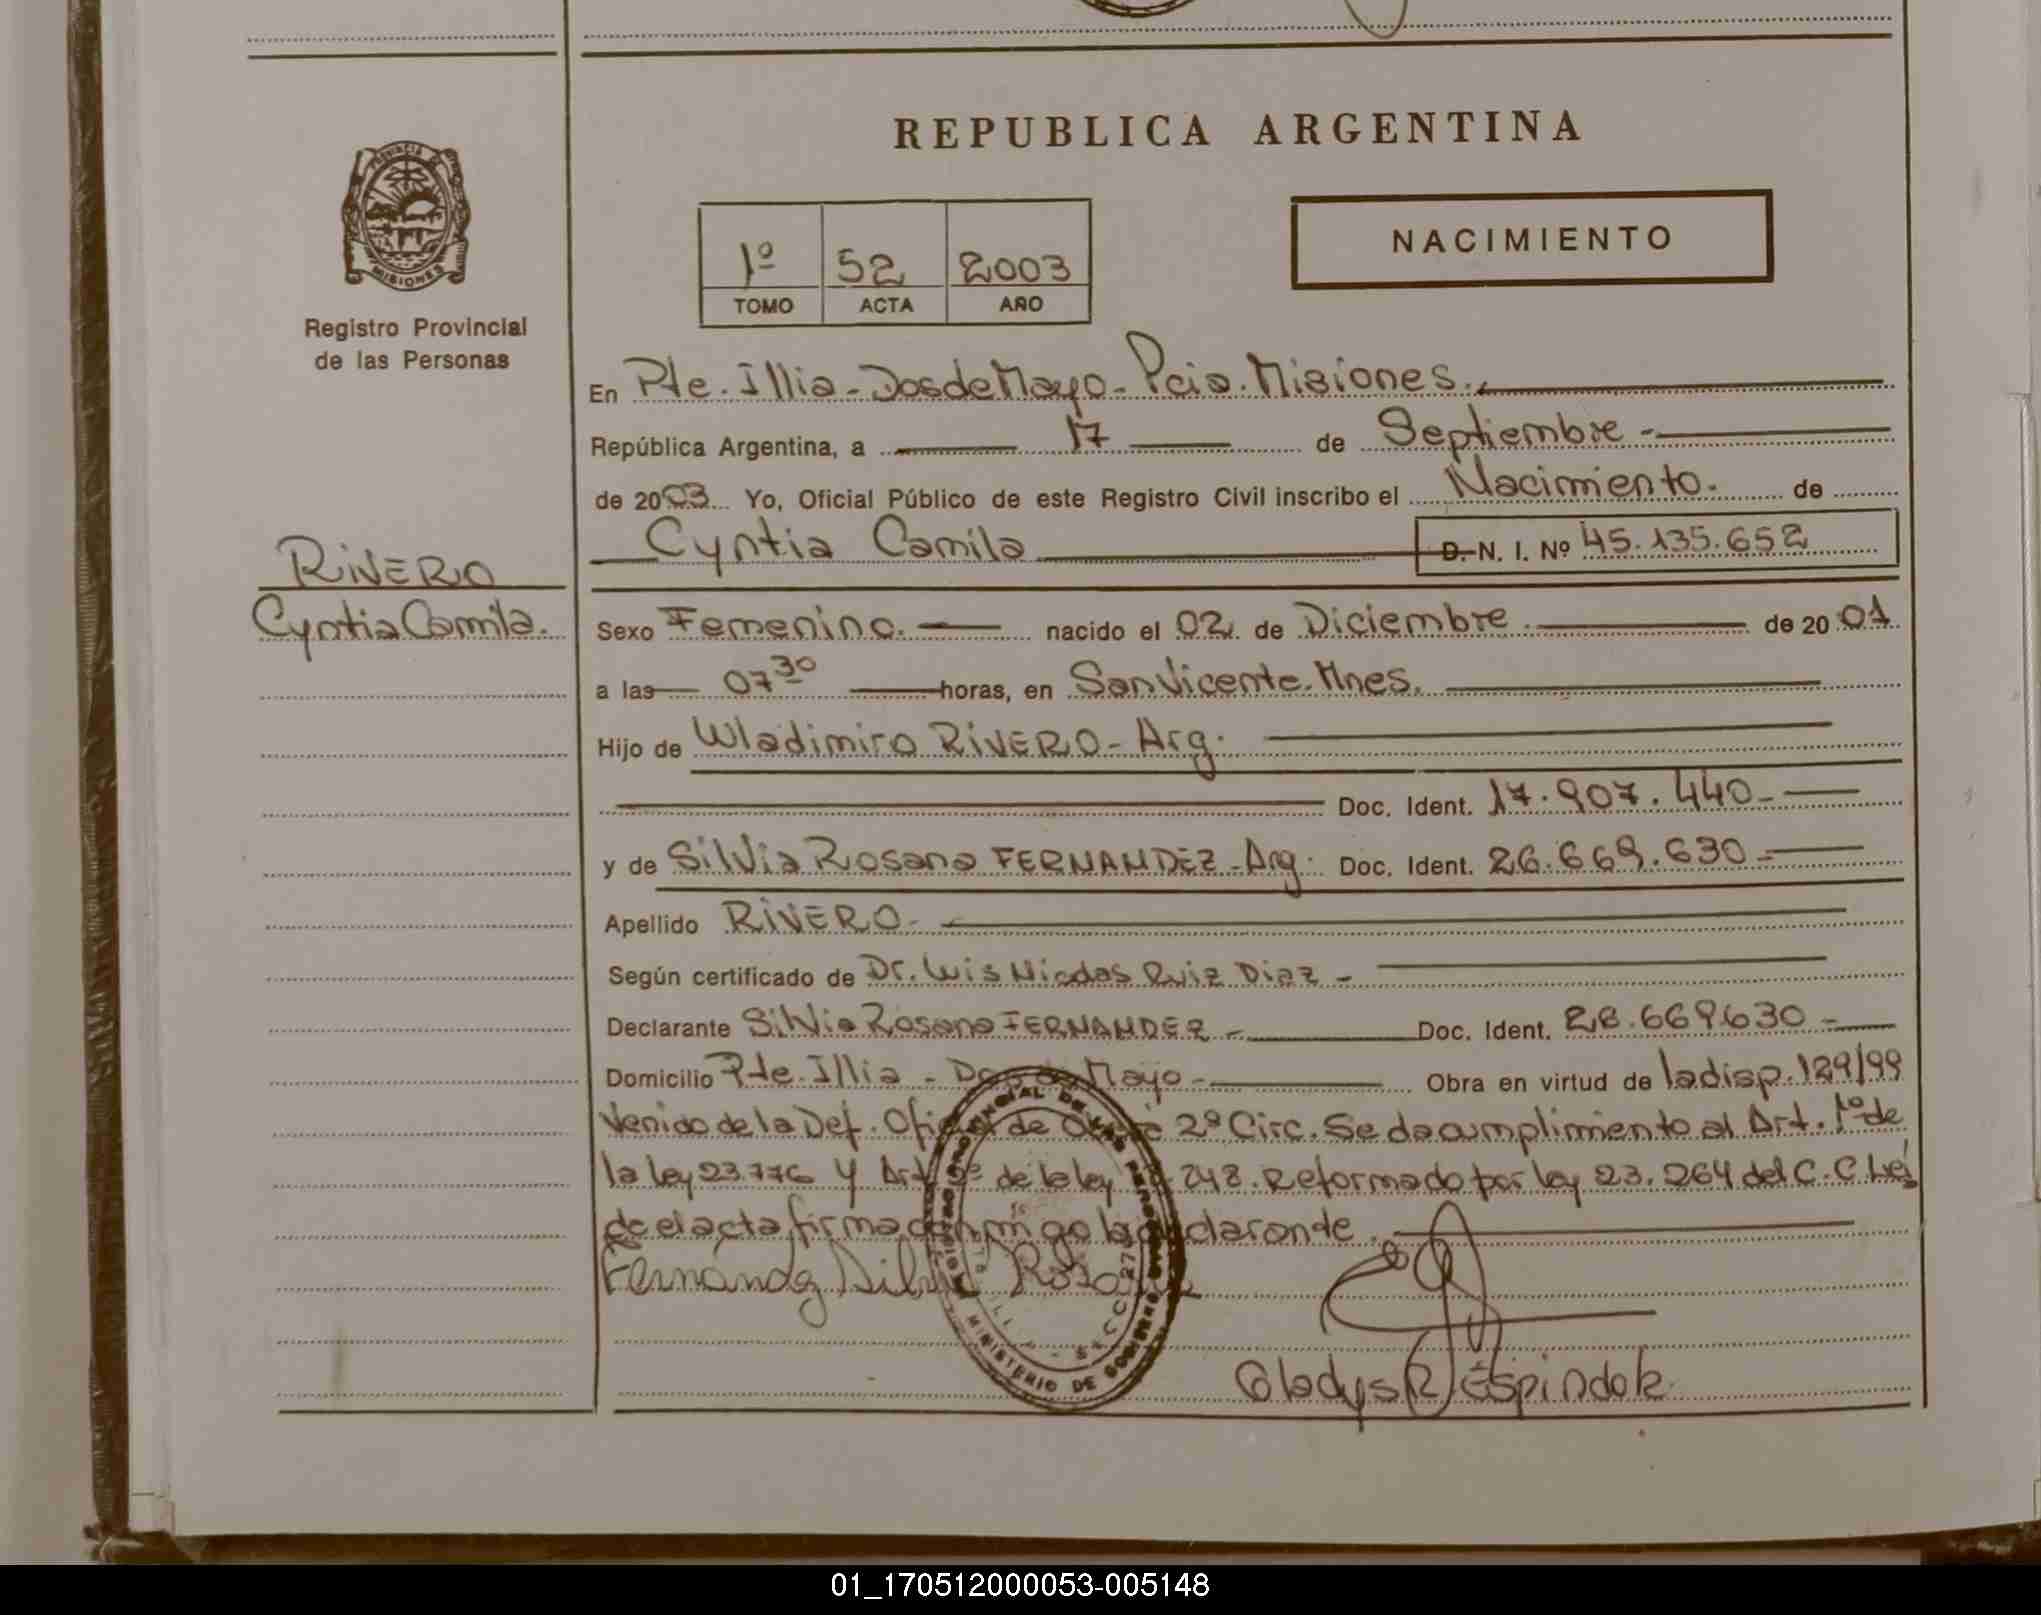 REPUBLICA ARGENTINA
PROVINCIA DE
MISIONES
Registro Provincial
de las Personas
1º 52 2003
TOMO ACTA AÑO
NACIMIENTO
En Pte. Illia - Dos de Mayo - Pcia. Misiones.
República Argentina, a 17 de Septiembre -
de 2003 Yo, Oficial Público de este Registro Civil inscribo el Nacimiento. de
Cyntia Camila D. N. I. Nº 45.135.652
RIVERO
Cyntia Camila.
Sexo Femenino. nacido el 02 de Diciembre de 2001
a las 07 30 horas, en San Vicente. Mnes.
Hijo de Wladimiro RIVERO - Arg.
Doc. Ident. 17.907.440 -
y de Silvia Rosana FERNANDEZ - Arg. Doc. Ident. 26.669.630 -
Apellido RIVERO -
Según certificado de Dr. Luis Nicolas Ruiz Diaz -
Declarante Silvia Rosana FERNANDEZ - Doc. Ident. 26.669.630 -
Domicilio Pte. Illia - Dos de Mayo - Obra en virtud de la disp. 129/99
Venido de la Def. de 2ª Circ. Se da cumplimiento al Art. 1º de
la ley 23.776 y Art. de la ley 248. Reformado por ley 23.264 del C. C. Leí
do el acta firma la declarante.
Fernandez Silvia Rosana
MINISTERIO DE GOBIERNO
Gladys R. Espindola
01_170512000053-005148